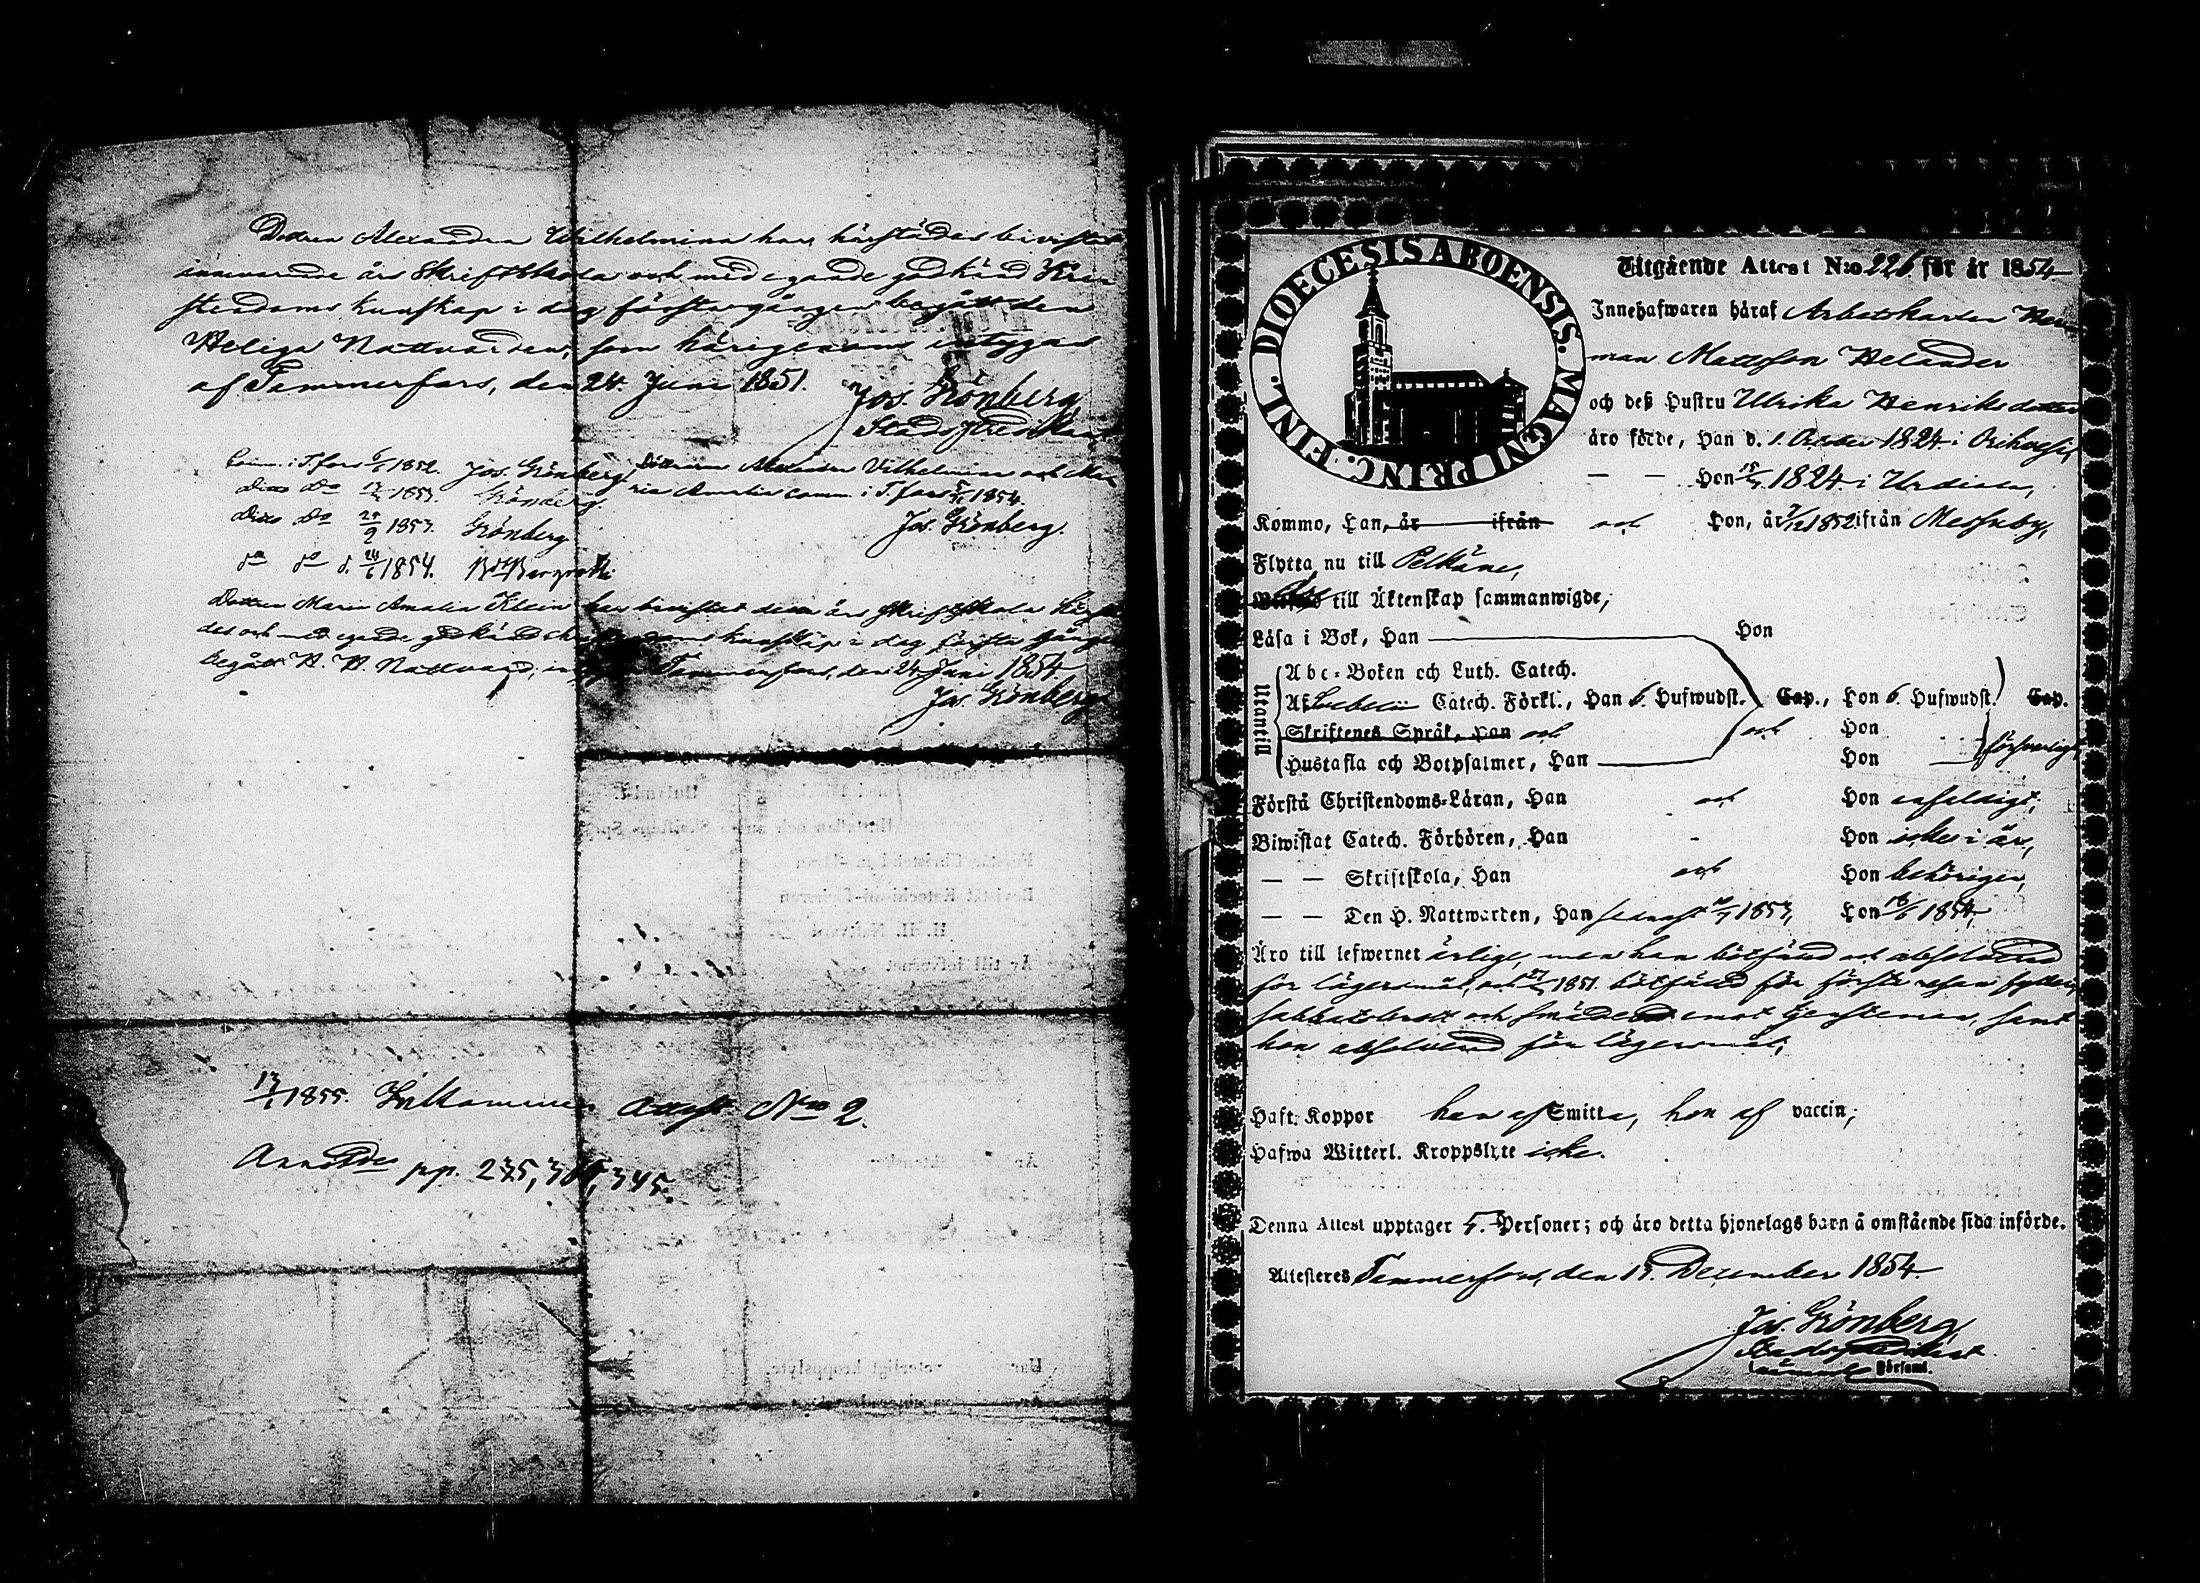 Dottren Alexandra Wilhelmina har härstädes bivistat
innevarande års Skriftskola och med egande godkänd Kri-
stendoms kunskap i dag första gången begått den
Heliga Nattvarden, som härigenom intygas
af Tammerfors, den 24. Juni 1851.
Jos. Grönberg,
Stadspredikant
Comm. i T.fors 1852. Jos. Grönberg.
Ditto do 1853. Grönberg.
Ditto do 25/9 1853. Grönberg
do do d. 24/6 1854.
Döttrarna Alexandra Vilhelmina och Ma-
ria Amalia comm. i T.fors 1854.
Jos. Grönberg.
Dottren Maria Amalia Klein har bevistat detta års Skriftskola härstä-
des och med egande godkänd christendoms kunskap i dag första gången
begått H. H. Nattvard, Tammerfors, den 24 Juni 1854.
Jos. Grönberg
13/1 1855. Inkommen Attest No 2.
pp. 235, 345.
FINL. DIOECESIS ABOENSIS. MAGNI PRINC.
Utgående Attest N:o 226 för år 1854
Innehafwaren häraf Arbetskarlen Her-
man Mattsson Helander
och deß Hustru Ulrika Henriksdotter
äro födde, Han d. 1. October 1824 i Orihvesi,
— — Hon 15/ 1824 i Urdiala,
Kommo, Han, är ifrån och Hon, är 1852 ifrån Messuby,
Flytta nu till Pelkäne,
till Äktenskap sammanwigde,
Läsa i Bok, Han Hon
Utantill
Abc-Boken och Luth. Catech.
Af Svebelii Catech. Förkl., Han 6. Hufwudst. Cap., Hon 6. Hufwudst. Cap.
Skriftenes Språk, Han och och Hon
Hustafla och Botpsalmer, Han Hon försvarligt,
Förstå Christendoms-Läran, Han och Hon enfaldigt,
Biwistat Catech. Förhören, Han - Hon icke i år,
— — Skriftskola, Han och Hon behörigen,
— — Den H. Nattwarden, Han senast 1853, Hon 18/6 1854,
Äro till lefwernet ärlige, men han bötfäld och absolverad
för lägersmål, och 1851. bötfäld för första resan fylleri,
sabbatsbrott och emot tjensteman, samt
hon absolverad för lägersmål,
Haft Koppor han af Smitta, hon af vaccin,
Hafwa Witterl. Kroppslyte icke.
Denna Attest upptager 5. Personer; och äro detta hjonelags barn å omstående sida införde.
Attesteras Tammerfors, den 13. December 1854.
Jos. Grönberg,
Stadspredikant
Församl.